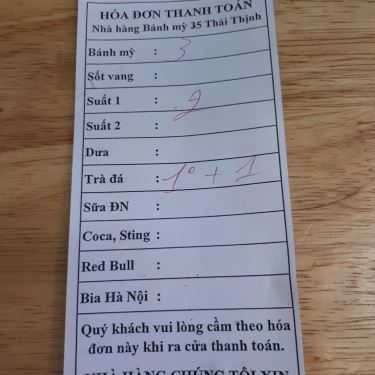 HÓA ĐƠN THANH TOÁN
Nhà hàng Bánh mỳ 35 Thái Thịnh
Bánh mỳ : 3
Sốt vang :
Suất 1 : 2
Suất 2 :
Dưa :
Trà đá : 1° + 1
Sữa ĐN :
Coca, Sting :
Red Bull :
Bia Hà Nội :
Quý khách vui lòng cầm theo hóa
đơn này khi ra cửa thanh toán.
NHÀ HÀNG CHÚNG TÔI XIN